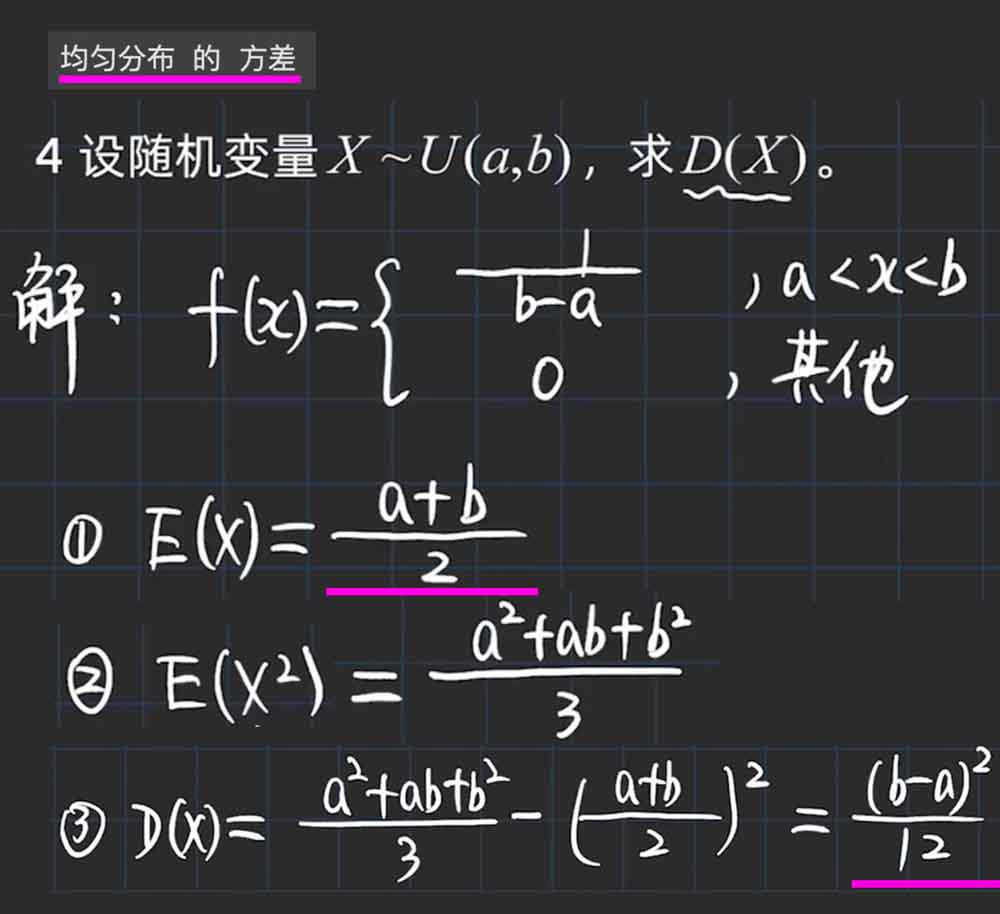 均匀分布 的 方差
4 设随机变量X~U(a,b)，求D(X)。
解： f(x)={ 1/(b-a) , a<x<b
0 , 其他
① E(X)= (a+b)/2
② E(X²) = (a²+ab+b²)/3
③ D(X)= (a²+ab+b²)/3 - ((a+b)/2)² = (b-a)²/12